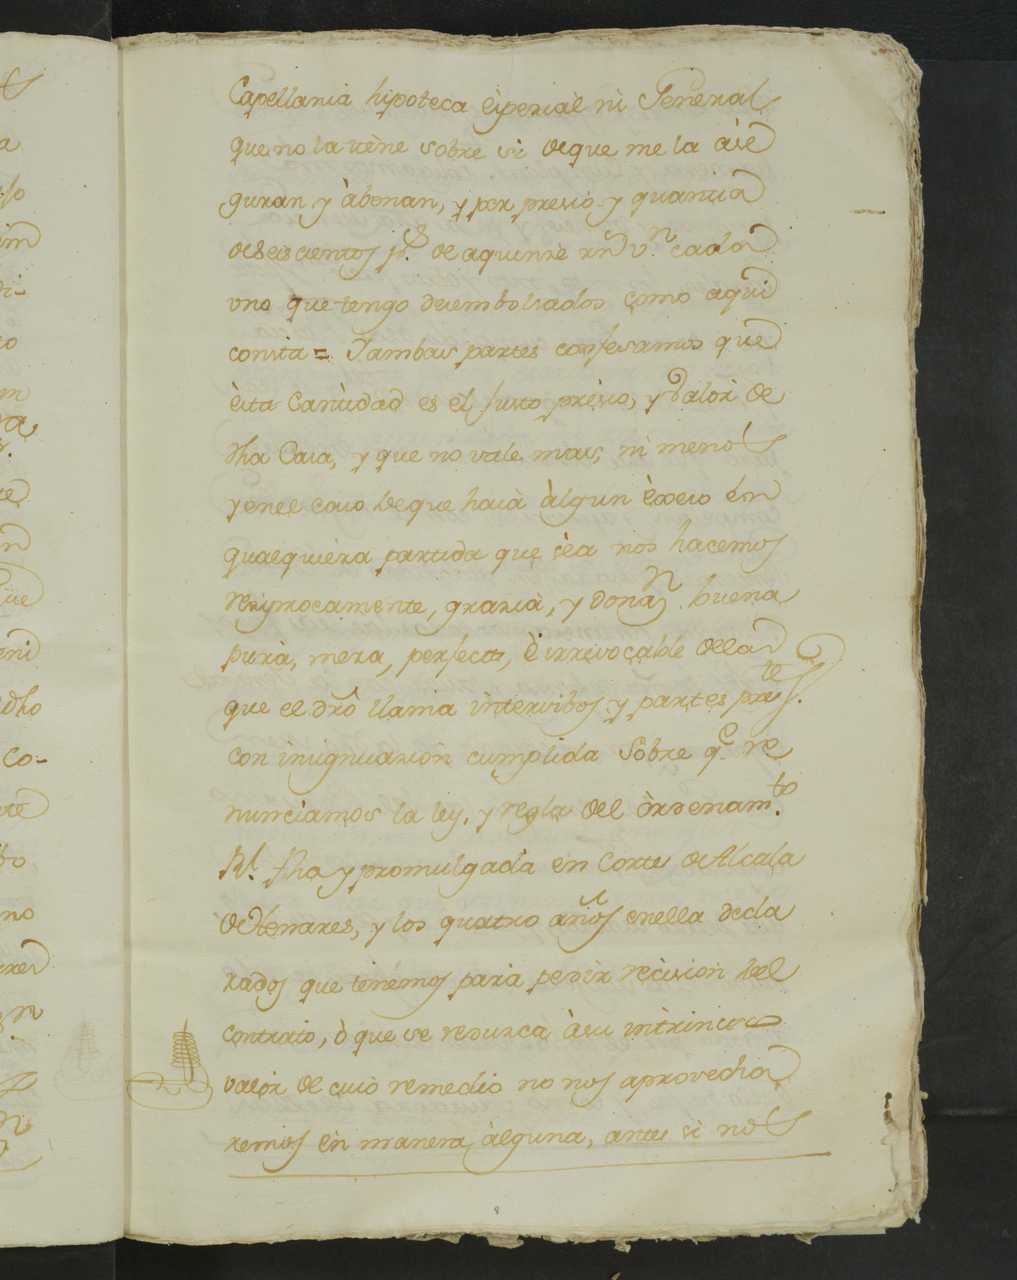 Capellania hipoteca èspecial ni General
que no la tiene sobre si de que me la ase
guran y àbonan, y por presio y quantia
de seis cientos ps. de aquinse rs. vn. cada
uno que tengo desembolsados como aqui
consta = Y ambas partes confesamos que
èsta Cantidad es el justo presio, y valòr de
dha Casa, y que no vale mas, ni menos
y en el caso de que haià àlgun èxceso èn
qualquiera partida que sèa nos hacemos
resiprocamente, grasia, y donan. buena
pura, mera, perfecta, è irrevocable de la
que el dro llama intervibos y partes prates.
con insignuasion cumplida sobre qe. re
nunciamos la ley, y regla del òrdenamto.
Rl. fha y promulgada en Corte de Alcala
de Henares, y los quatro años en ella decla
rados que tenemos para pedir recision del
contrato, ò que se redusca àsu intrinsico
valòr de cuio remedio no nos aprovecha
remos èn manera àlguna, antes si nos